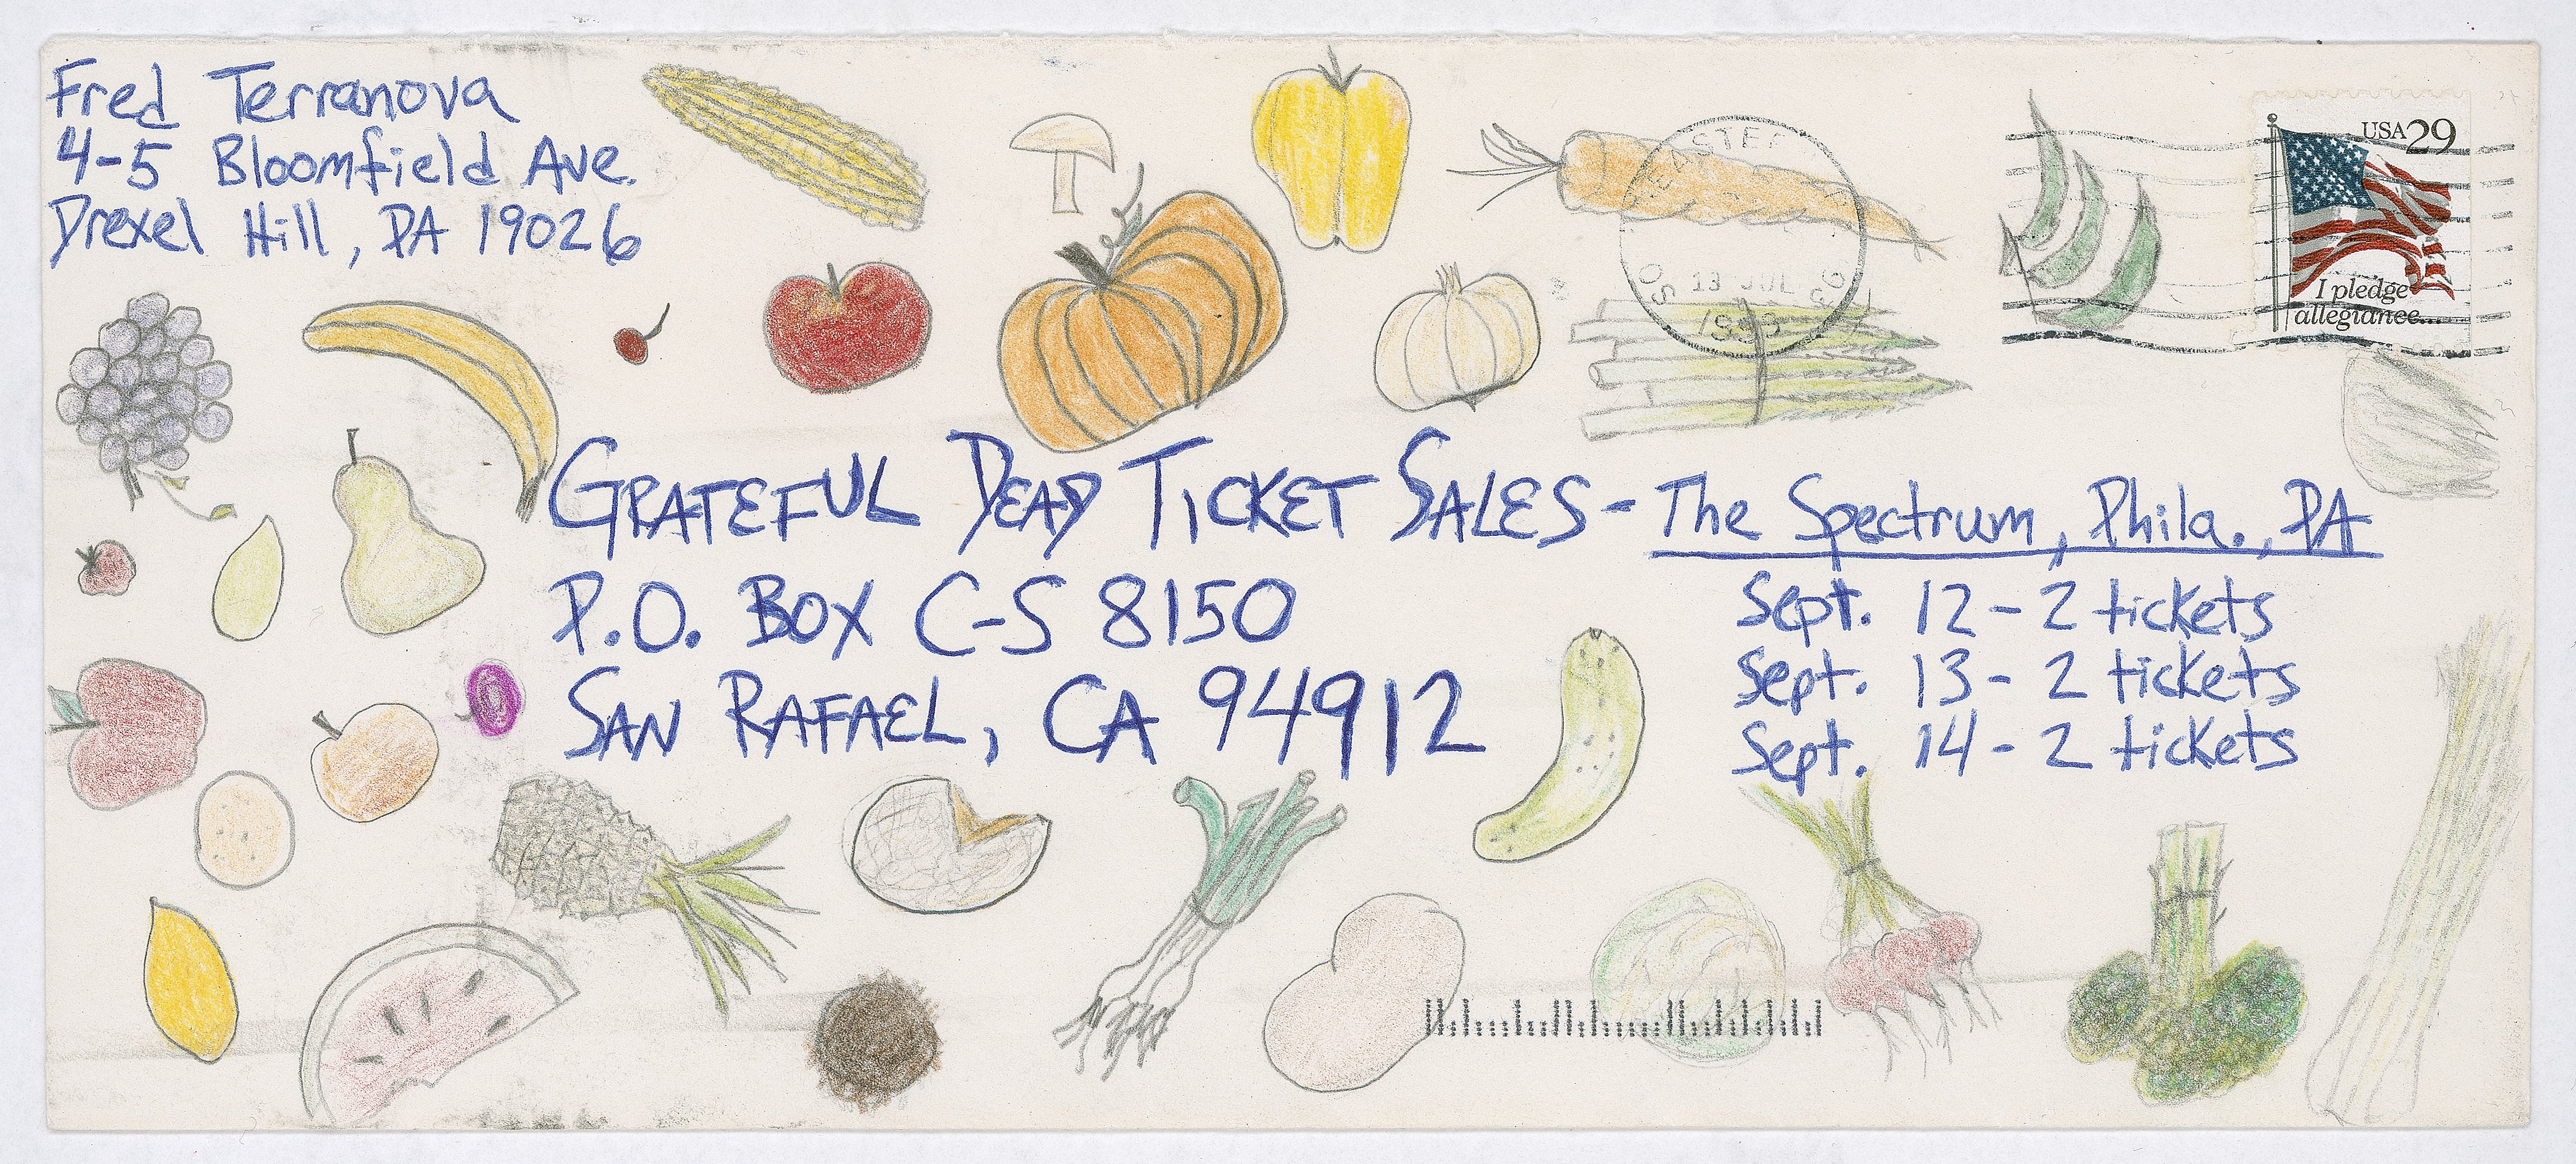 Fred Terranova
4-5 Bloomfield Ave.
Drexel Hill, PA 19026
USA 29
I pledge
allegiance...
13 JUL
1993
GRATEFUL DEAD TICKET SALES - The Spectrum, Phila., PA
P.O. BOX C-S 8150
SAN RAFAEL, CA 94912
Sept. 12 - 2 tickets
Sept. 13 - 2 tickets
Sept. 14 - 2 tickets